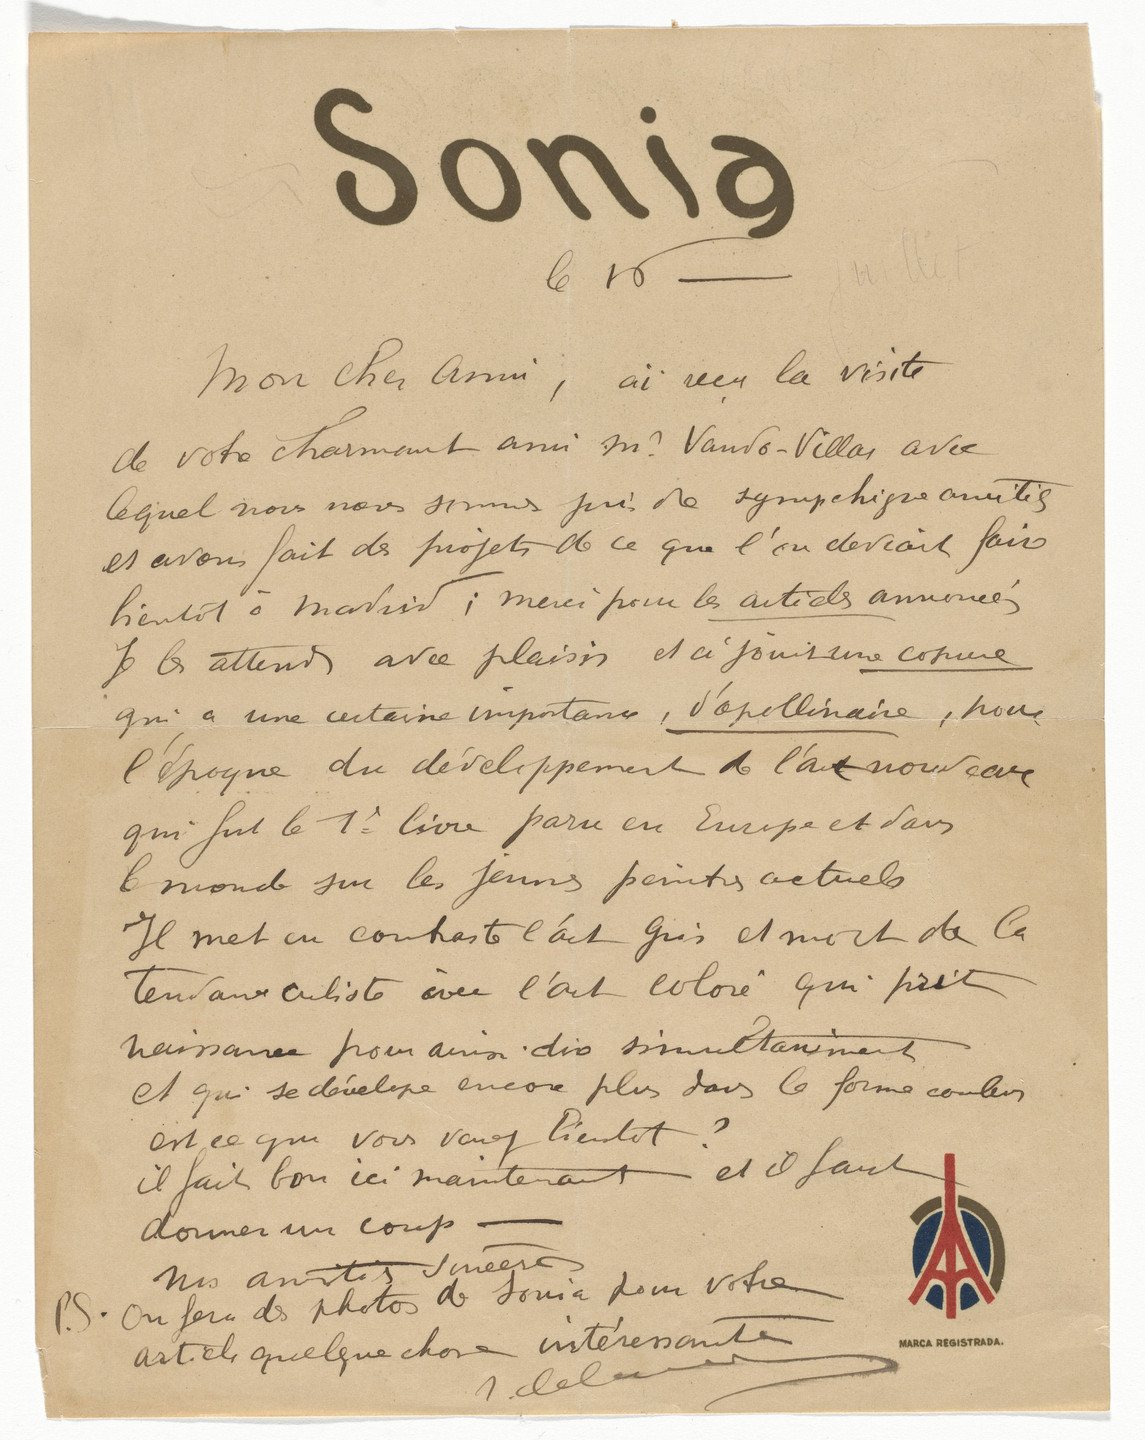 Sonia
le 16 —
juillet
Mon cher ami, ai reçu la visite
de votre charmant ami Mr Vando-Villar avec
lequel nous nous sommes pris de amitiés
et avons fait des projets de ce que l'on devrait faire
bientôt à Madrid ; merci pour les articles annoncés
Je les attends avec plaisir et
qui a une certaine importance, d'apollinaire, pour
l'époque du développement de l'art nouveau
qui fut le 1er livre paru en Europe et dans
le monde sur les jeunes peintres actuels
Il met en contraste l'art gris et mort de la
tendance cubiste avec l'art coloré qui prit
naissance pour ainsi dire simultanément
et qui se dévelope encore plus dans la forme couleur
est ce que vous venez bientot ?
il fait bon ici maintenant et il faut
donner un coup —
Nos amitiés sincères
P.S. On fera des photos de Sonia pour votre
article quelque chose intéressante
r. delaunay
MARCA REGISTRADA.